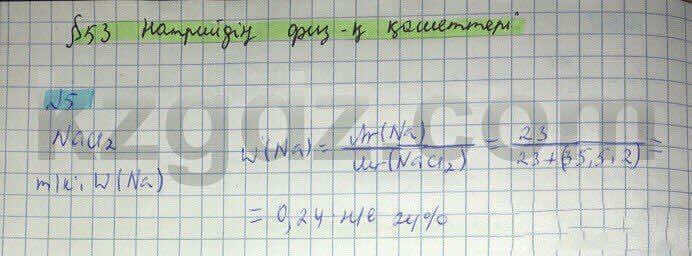 §53 Натрийдің физ-қ қасиеттері
№5
NaCl₂
т/к: W(Na)
w(Na) = Ar(Na) / Mr(NaCl₂) = 23 / 23+(35,5·2) =
= 0,24 н/е 24%
kzgdz.com